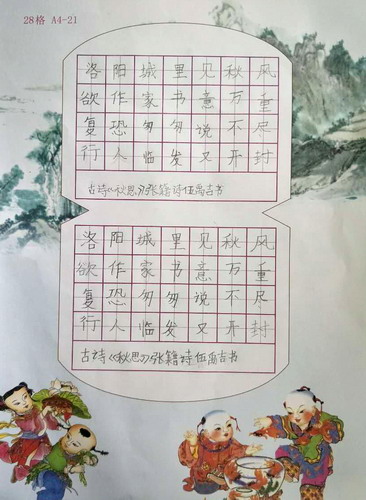 28格 A4-21
洛阳城里见秋风
欲作家书意万重
复恐匆匆说不尽
行人临发又开封
古诗《秋思》张籍诗伍禹古书
洛阳城里见秋风
欲作家书意万重
复恐匆匆说不尽
行人临发又开封
古诗《秋思》张籍诗伍禹古书